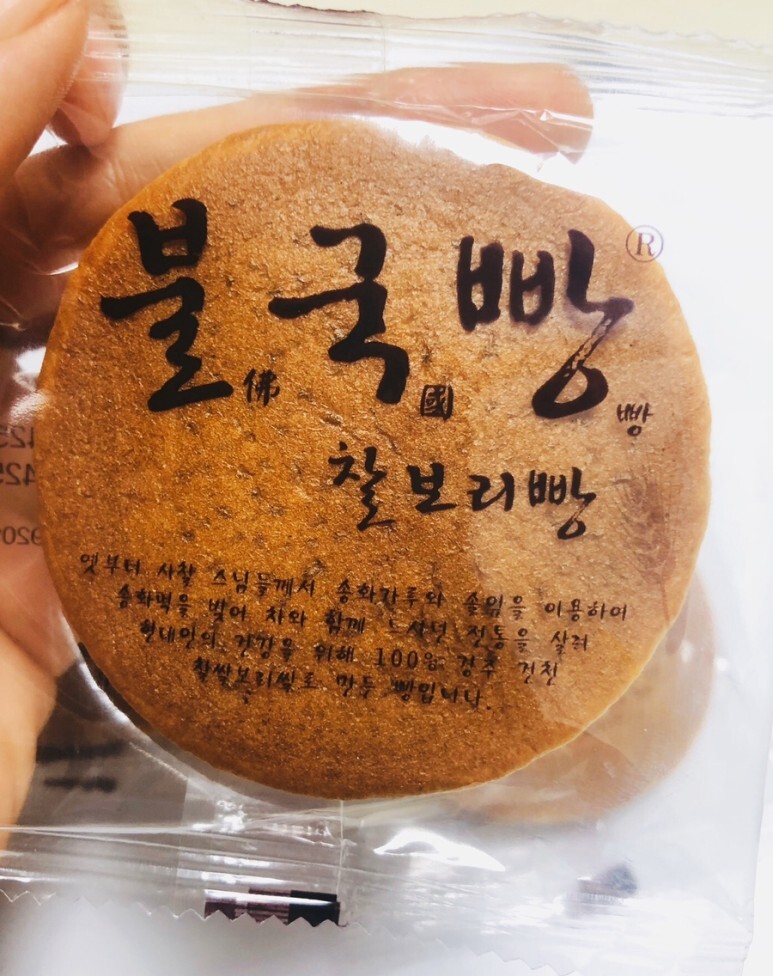 불국빵 ®
佛 國 빵
찰보리빵
옛부터 사찰 스님들께서 송화가루와 솔잎을 이용하여
송화떡을 빚어 차와 함께 드시던 전통을 살려
현대인의 건강을 위해 100% 경주 건천
찰쌀보리쌀로 만든 빵입니다.